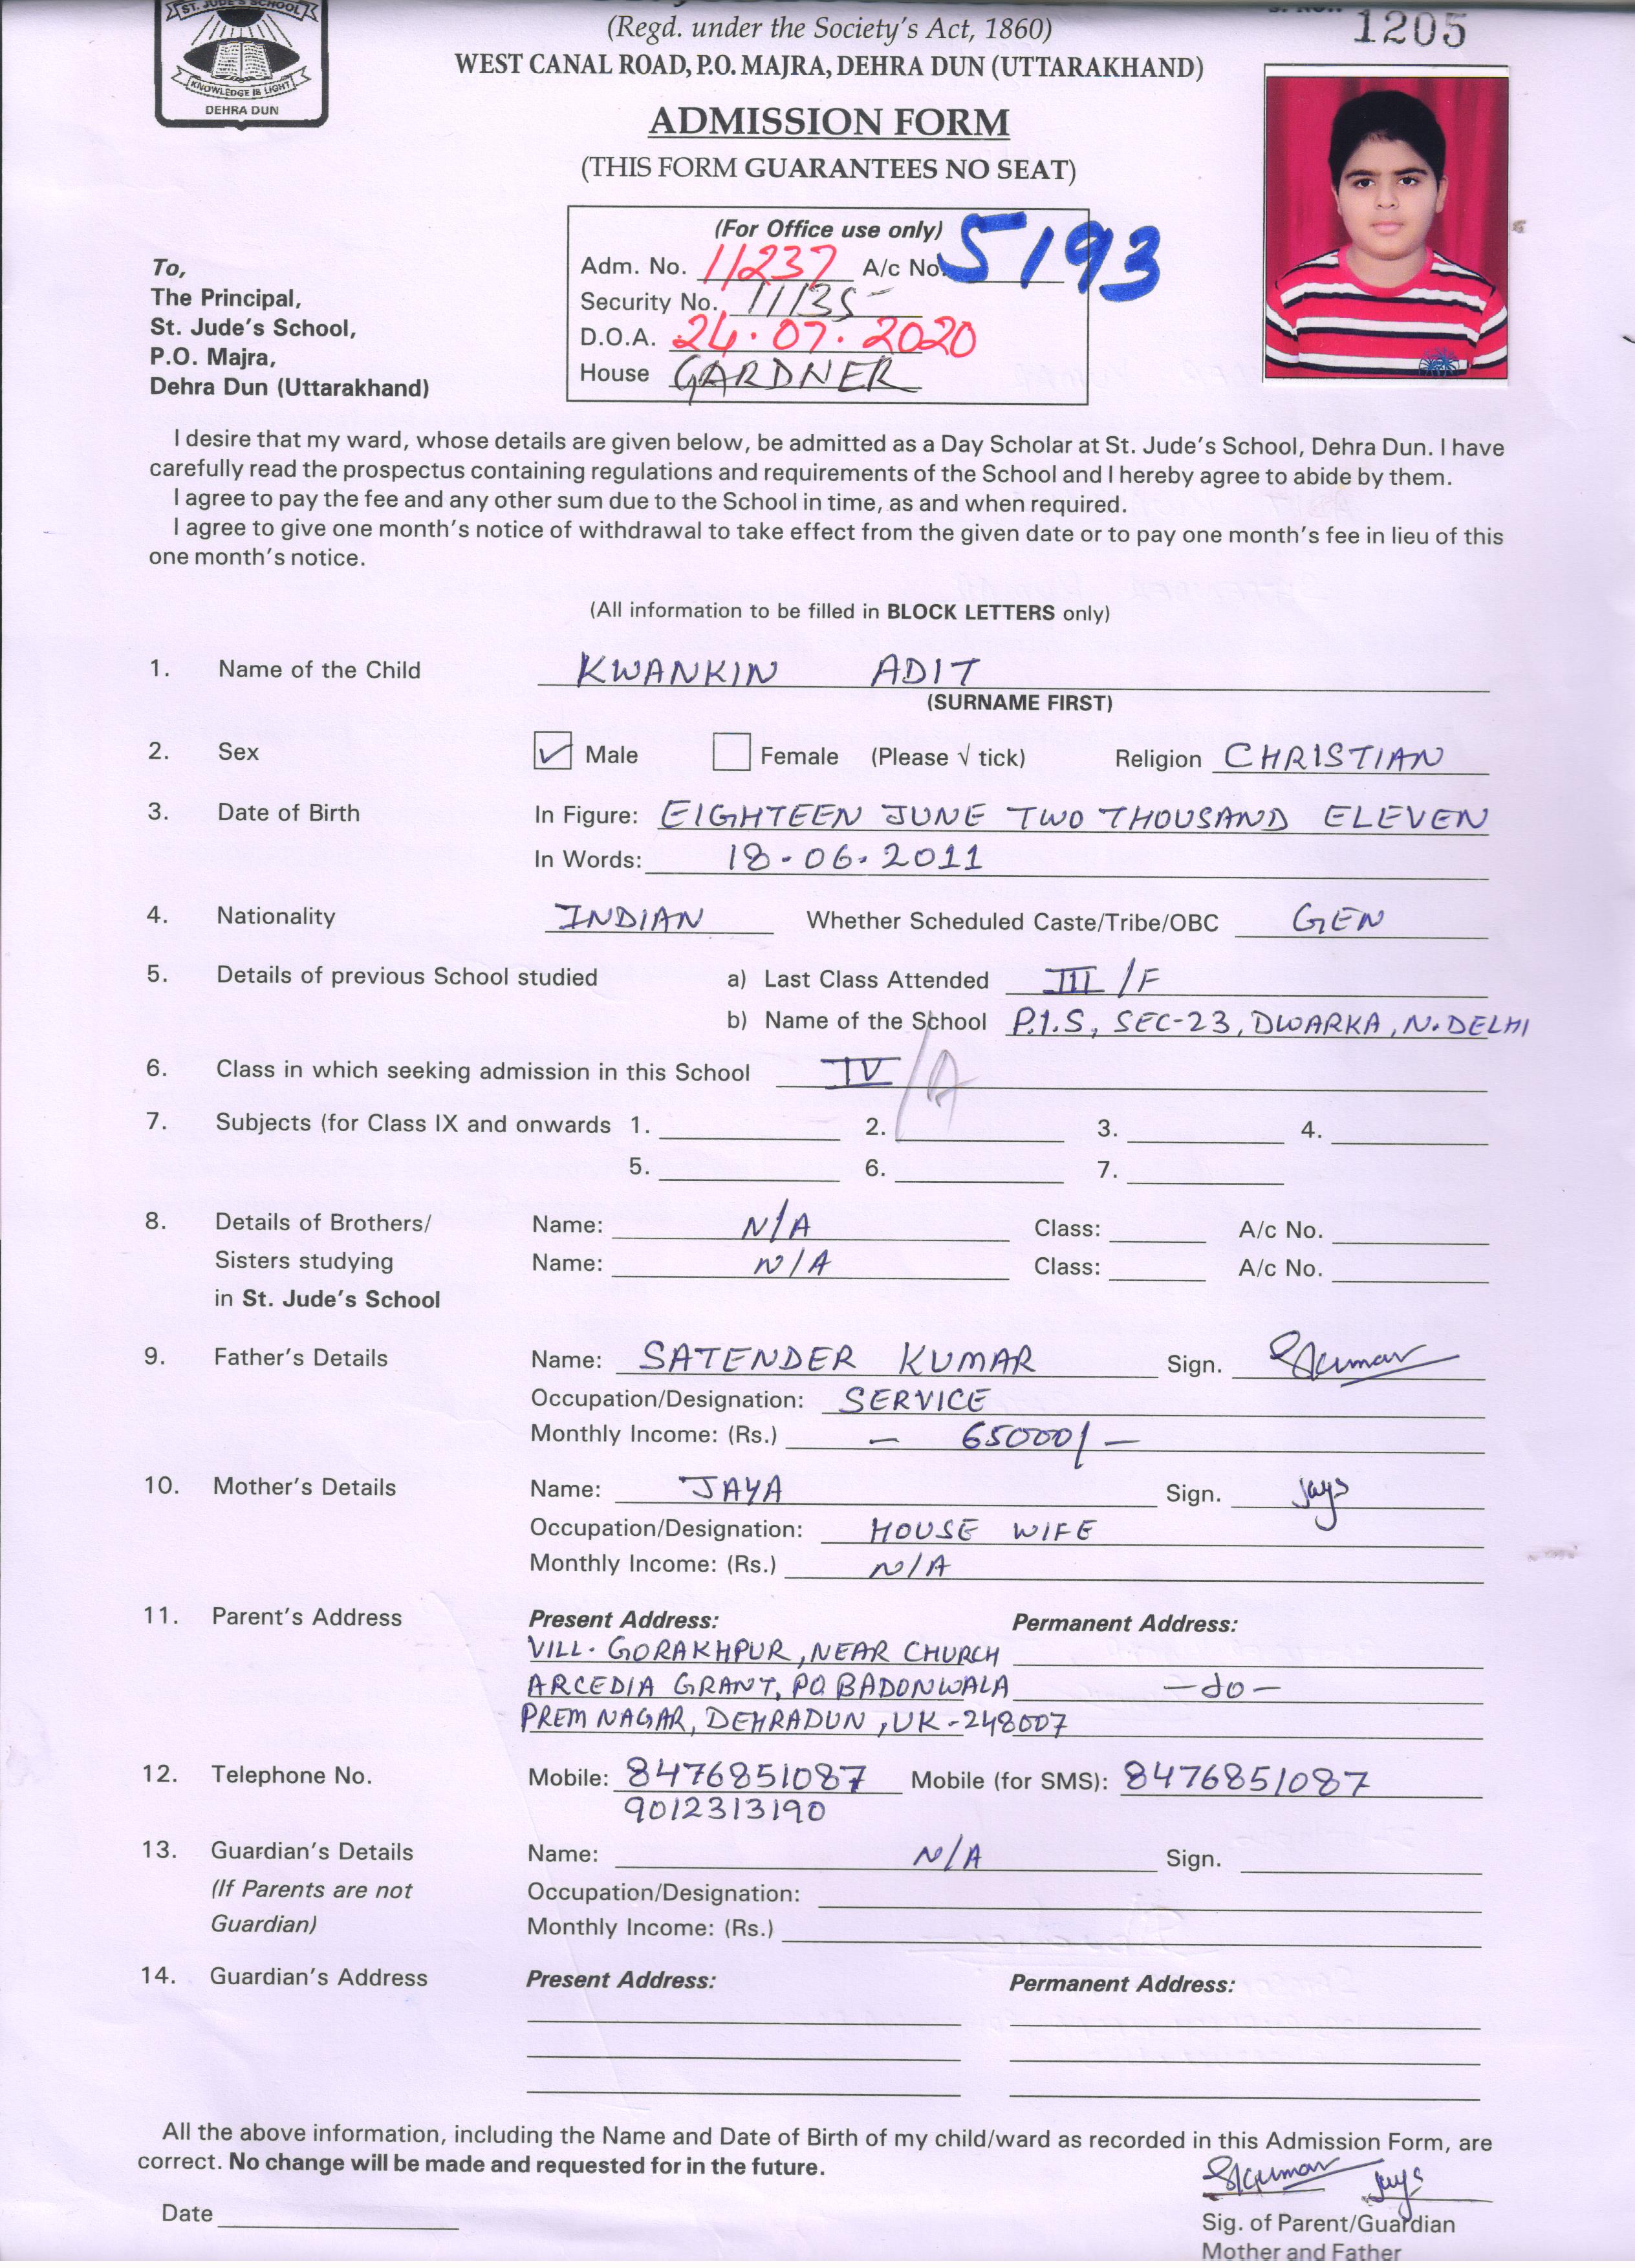 ST. JUDE'S SCHOOL
KNOWLEDGE IS LIGHT
DEHRA DUN
(Regd. under the Society's Act, 1860)
1205
WEST CANAL ROAD, P.O. MAJRA, DEHRA DUN (UTTARAKHAND)
ADMISSION FORM
(THIS FORM GUARANTEES NO SEAT)
(For Office use only)
Adm. No. 11237 A/c No. 5193
Security No. 11135
D.O.A. 24.07.2020
House GARDNER
To,
The Principal,
St. Jude's School,
P.O. Majra,
Dehra Dun (Uttarakhand)
I desire that my ward, whose details are given below, be admitted as a Day Scholar at St. Jude's School, Dehra Dun. I have
carefully read the prospectus containing regulations and requirements of the School and I hereby agree to abide by them.
I agree to pay the fee and any other sum due to the School in time, as and when required.
I agree to give one month's notice of withdrawal to take effect from the given date or to pay one month's fee in lieu of this
one month's notice.
(All information to be filled in BLOCK LETTERS only)
1. Name of the Child KWANKIN ADIT
(SURNAME FIRST)
2. Sex Male Female (Please √ tick) Religion CHRISTIAN
3. Date of Birth In Figure: EIGHTEEN JUNE TWO THOUSAND ELEVEN
In Words: 18.06.2011
4. Nationality INDIAN Whether Scheduled Caste/Tribe/OBC GEN
5. Details of previous School studied a) Last Class Attended III/F
b) Name of the School P.I.S, SEC-23, DWARKA, N.DELHI
6. Class in which seeking admission in this School IV/A
7. Subjects (for Class IX and onwards 1. 2. 3. 4.
5. 6. 7.
8. Details of Brothers/ Name: N/A Class: A/c No.
Sisters studying Name: N/A Class: A/c No.
in St. Jude's School
9. Father's Details Name: SATENDER KUMAR Sign. SKumar
Occupation/Designation: SERVICE
Monthly Income: (Rs.) - 65000/-
10. Mother's Details Name: JAYA Sign. Jaya
Occupation/Designation: HOUSE WIFE
Monthly Income: (Rs.) N/A
11. Parent's Address Present Address: Permanent Address:
VILL. GORAKHPUR, NEAR CHURCH
ARCEDIA GRANT, PO BADONWALA -do-
PREM NAGAR, DEHRADUN, UK-248007
12. Telephone No. Mobile: 8476851087 Mobile (for SMS): 8476851087
9012313190
13. Guardian's Details Name: N/A Sign.
(If Parents are not Occupation/Designation:
Guardian) Monthly Income: (Rs.)
14. Guardian's Address Present Address: Permanent Address:
All the above information, including the Name and Date of Birth of my child/ward as recorded in this Admission Form, are
correct. No change will be made and requested for in the future.
SKumar Jaya
Date
Sig. of Parent/Guardian
Mother and Father